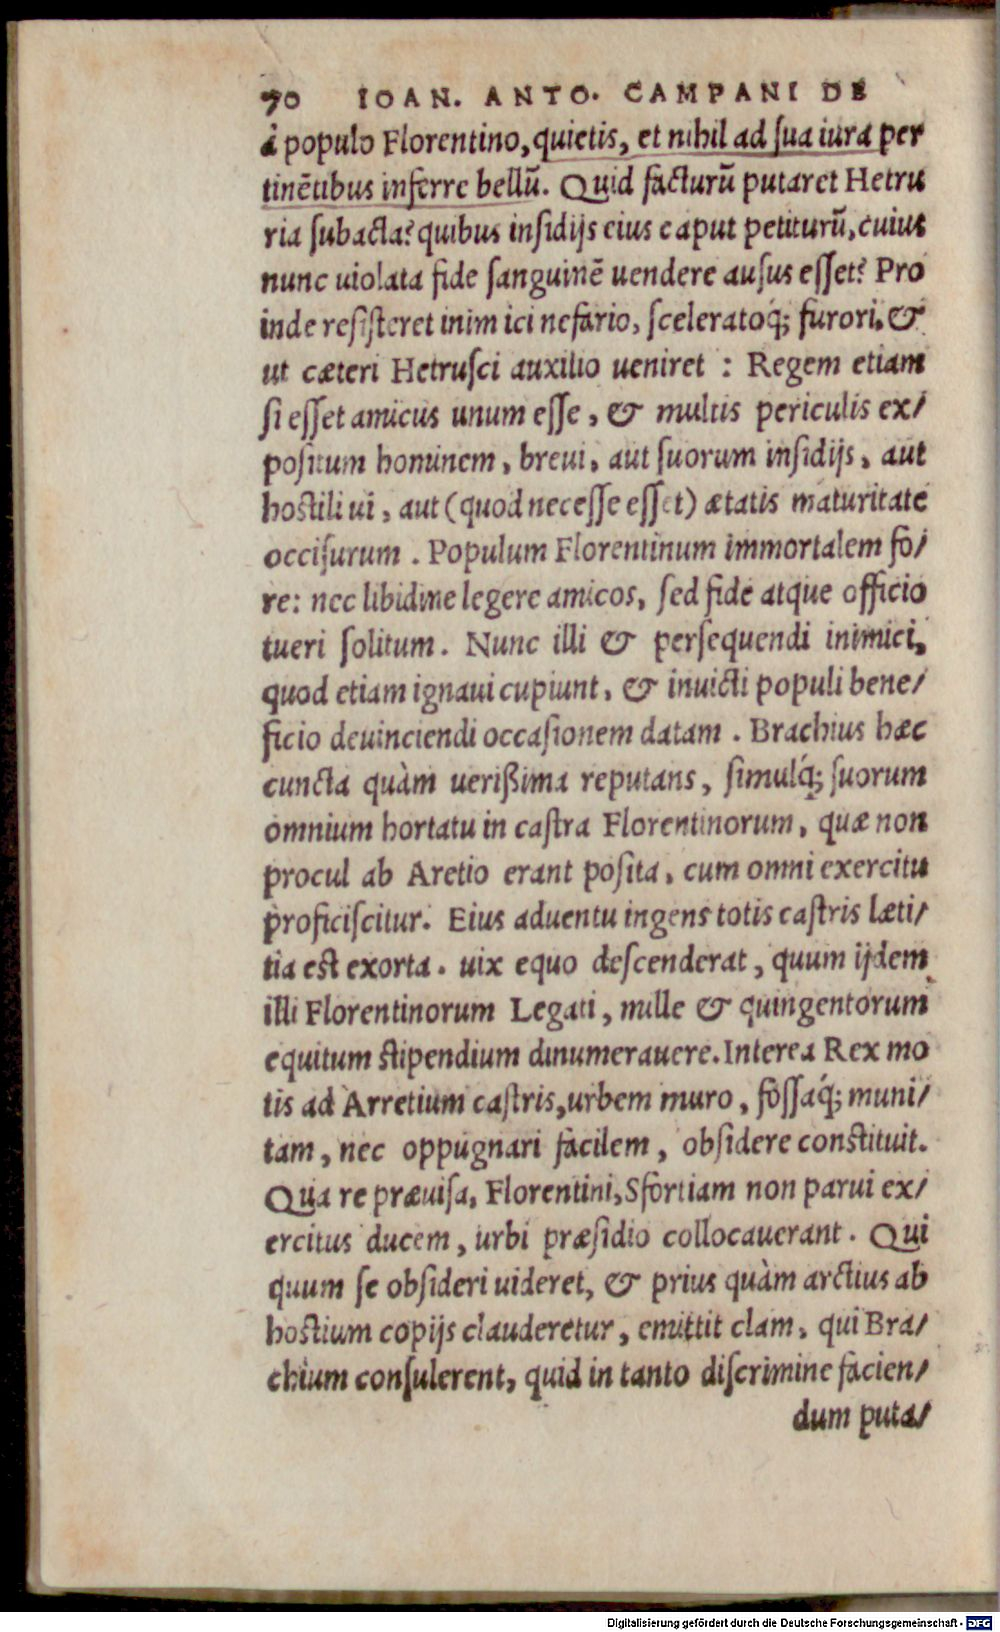 70 IOAN. ANTO. CAMPANI DE
à populo Florentino, quietis, et nihil ad sua iura per
tinētibus inferre bellū. Quid facturū putaret Hetru
ria subacta? quibus insidijs eius caput petiturū, cuius
nunc uiolata fide sanguinē uendere ausus esset? Pro
inde resisteret inimici nefario, sceleratoq́; furori, &
ut cæteri Hetrusci auxilio ueniret : Regem etiam
si esset amicus unum esse, & multis periculis ex/
positum hominem, breui, aut suorum insidijs, aut
hostili ui, aut (quod necesse esset) ætatis maturitate
occisurum. Populum Florentinum immortalem fo/
re: nec libidine legere amicos, sed fide atque officio
tueri solitum. Nunc illi & persequendi inimici,
quod etiam ignaui cupiunt, & inuicti populi bene/
ficio deuinciendi occasionem datam. Brachius hæc
cuncta quàm uerißima reputans, simulq́; suorum
omnium hortatu in castra Florentinorum, quæ non
procul ab Aretio erant posita, cum omni exercitu
proficiscitur. Eius aduentu ingens totis castris læti/
tia est exorta. uix equo descenderat, quum ijdem
illi Florentinorum Legati, mille & quingentorum
equitum stipendium dinumerauere. Interea Rex mo
tis ad Arretium castris, urbem muro, fossaq́; muni/
tam, nec oppugnari facilem, obsidere constituit.
Qua re præuisa, Florentini, Sfortiam non parui ex/
ercitus ducem, urbi præsidio collocauerant. Qui
quum se obsideri uideret, & prius quàm arctius ab
hostium copijs clauderetur, emittit clam, qui Bra/
chium consulerent, quid in tanto discrimine facien/
dum puta/
Digitalisierung gefördert durch die Deutsche Forschungsgemeinschaft - DFG